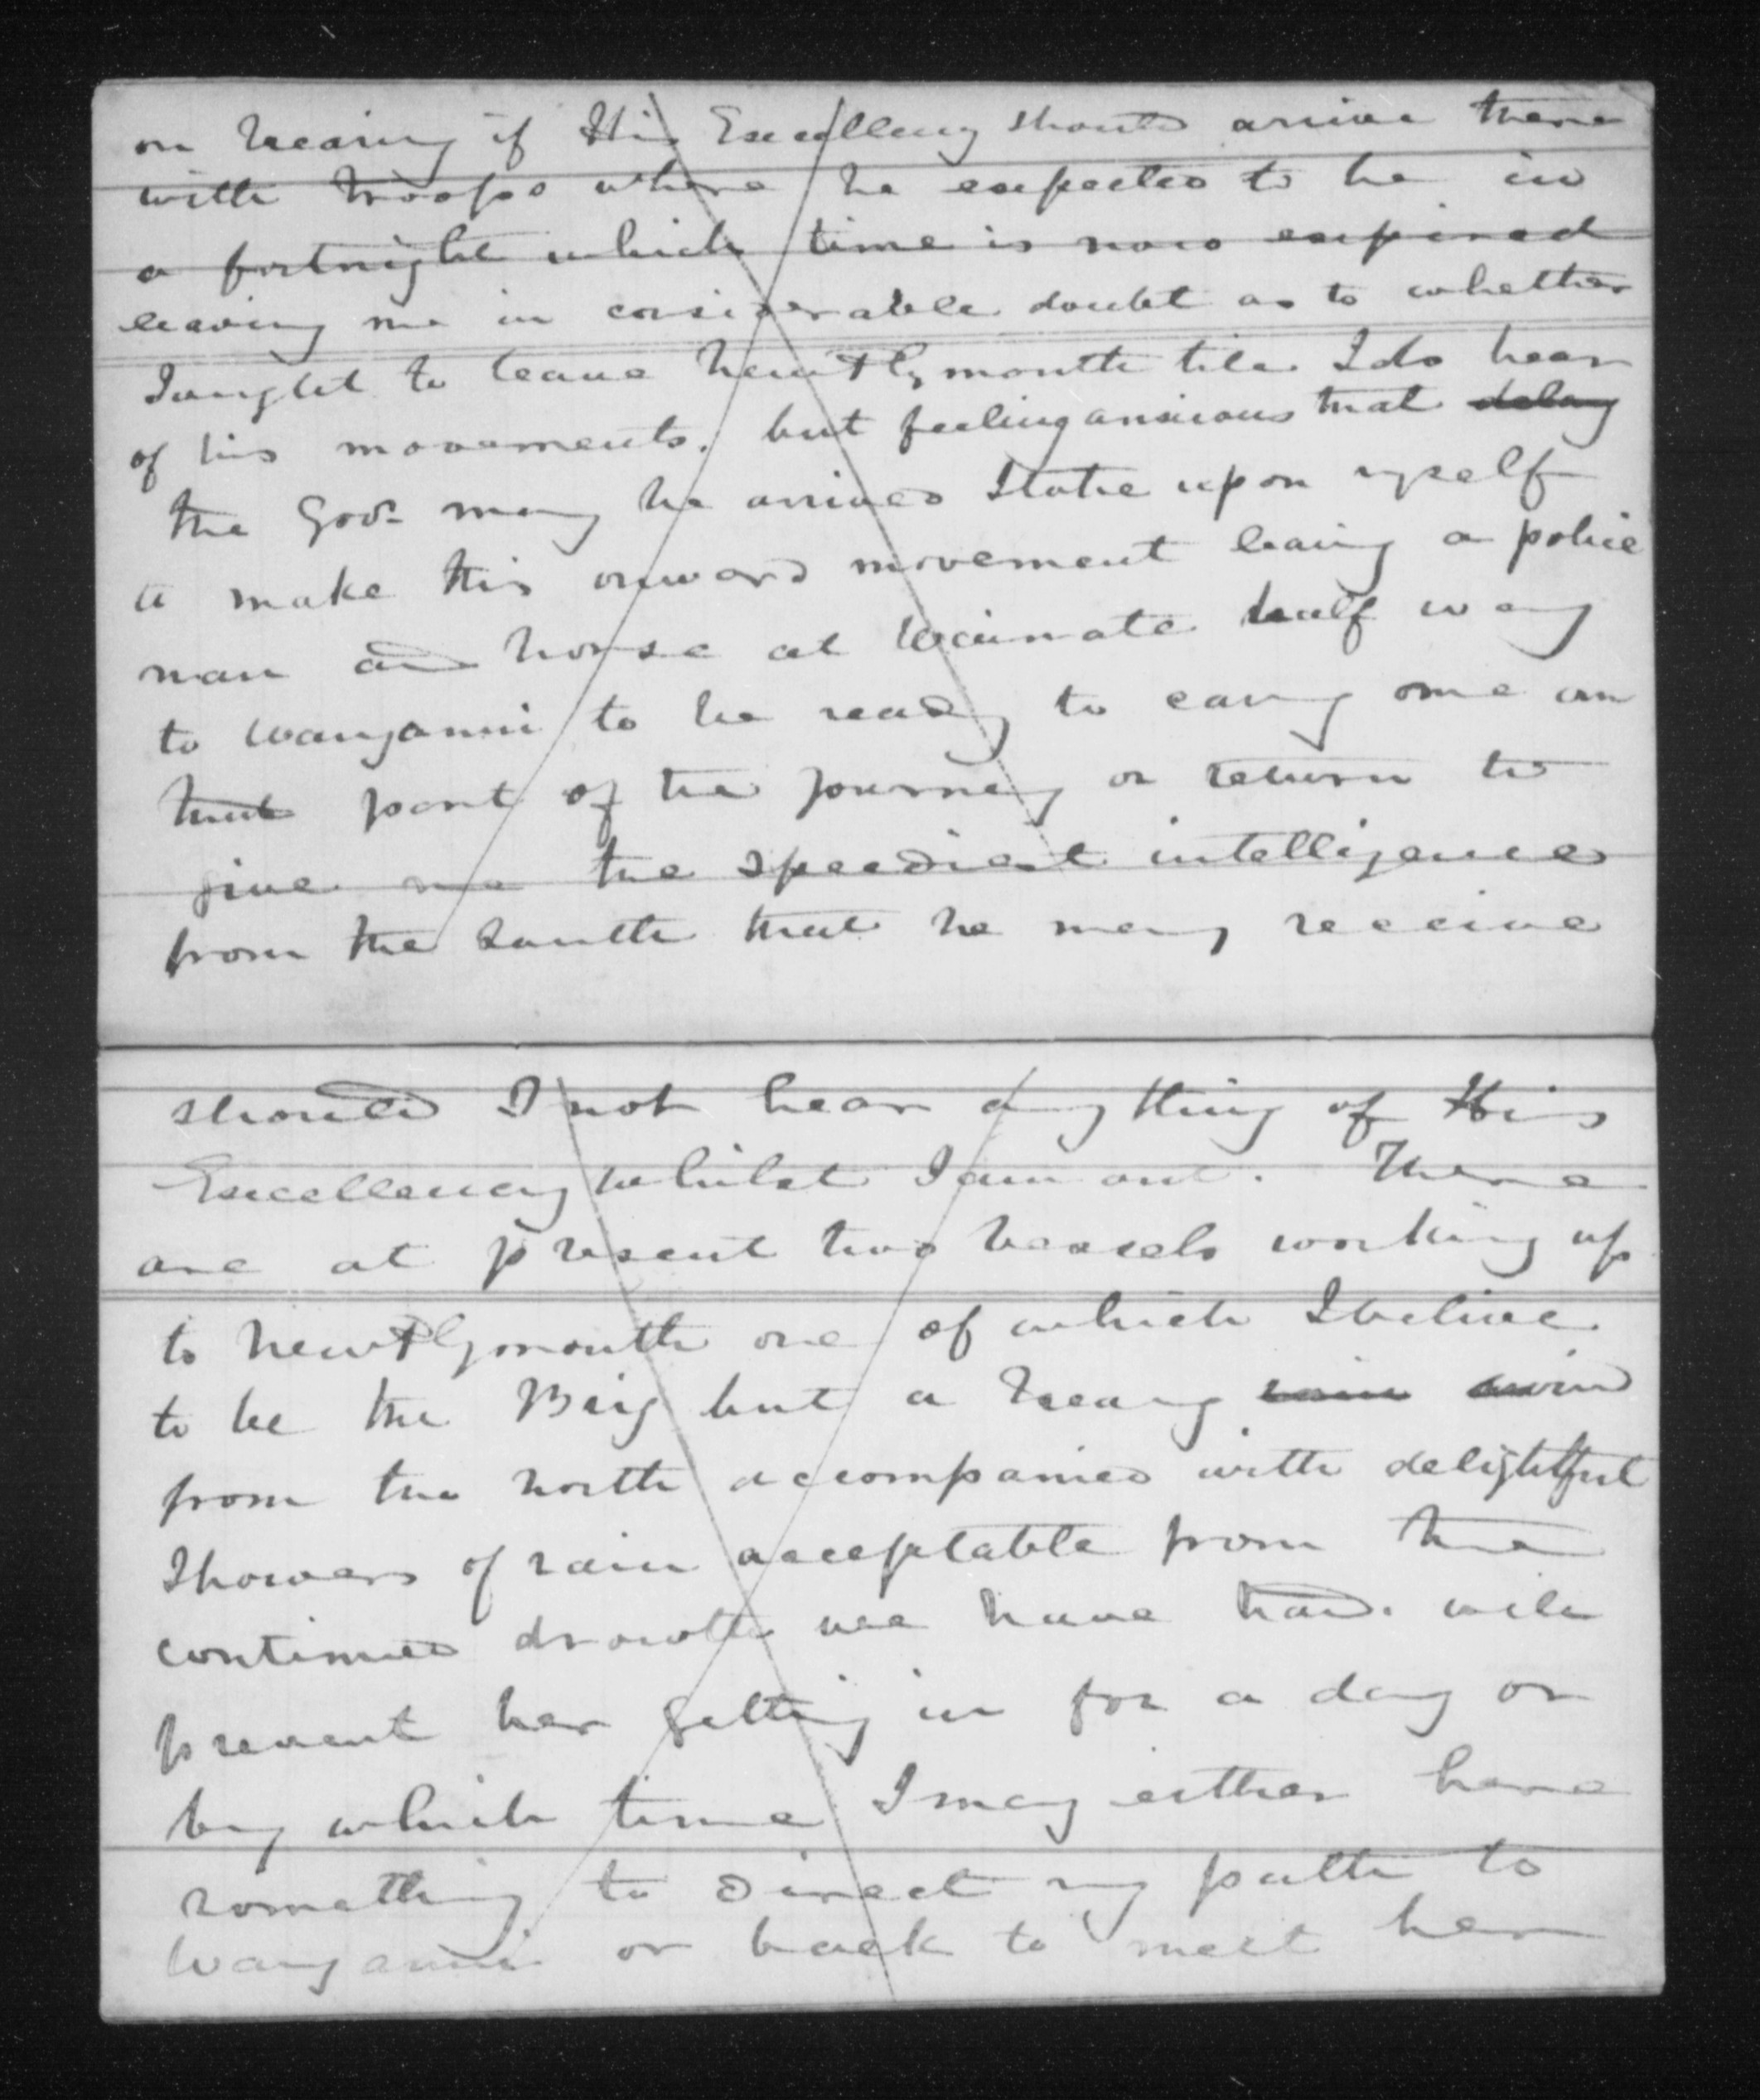 on hearing if His Excellency should arrive there
with troops where he expected to be in
a fortnight which time is now expired
leaving me in considerable doubt as to whether
I ought to leave New Plymouth till I do hear
of his movements. but feeling anxious that delay
the Govr may be arrived I take upon myself
to make this onward movement leaving a police
man and horse at Waimate half way
to Wanganui to be ready to carry me on
that part of the journey or return to
give me the speediest intelligence
from the South that he may receive
should I not hear anything of His
Excellency whilst I am out. There
are at present two vessels working up
to New Plymouth one of which I believe
to be the Brig but a heavy rain wind
from the North accompanied with delightful
showers of rain acceptable from the
continued drowth we have had. will
prevent her getting in for a day or
by which time I may either have
something to direct my path to
Wanganui or back to meet her